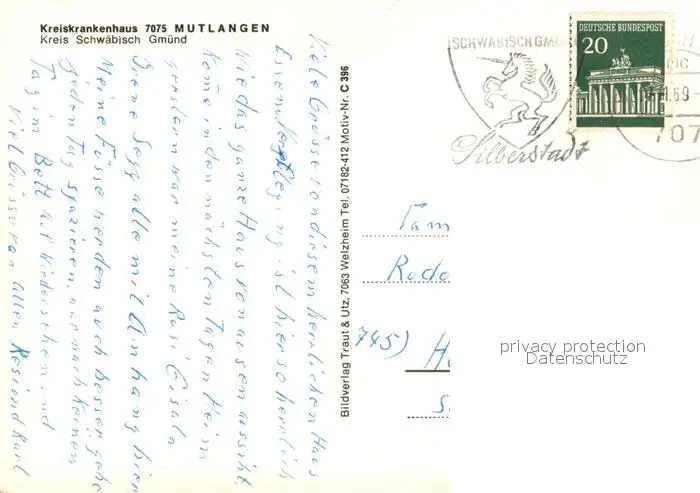 Kreiskrankenhaus 7075 MUTLANGEN
Kreis Schwäbisch Gmünd
Viele Grüsse von diesem herrlichen Haus
Essen Verpflegung ist hier so herrlich
wie das ganze Haus von aussen aussieht,
Komme in den nächsten Tagen Heim
gerstern war meine Rosi Gisala
Irene Sepp alle mit Anhang hier
Meine Füsse werden auch besser, gehe
jeden Tag spazieren, nur noch keinen
Tag im Bett auf Wiedersehen und
Viel Grüsse an allen Resi und Karl
Bildverlag Traut & Utz, 7063 Welzheim Tel. 07182-412 Motiv-Nr. C 396
SCHWÄBISCH GMÜ
Silberstadt
DEUTSCHE BUNDESPOST
20
69
707
Fam
Rodo
745) He
S
privacy protection
Datenschutz